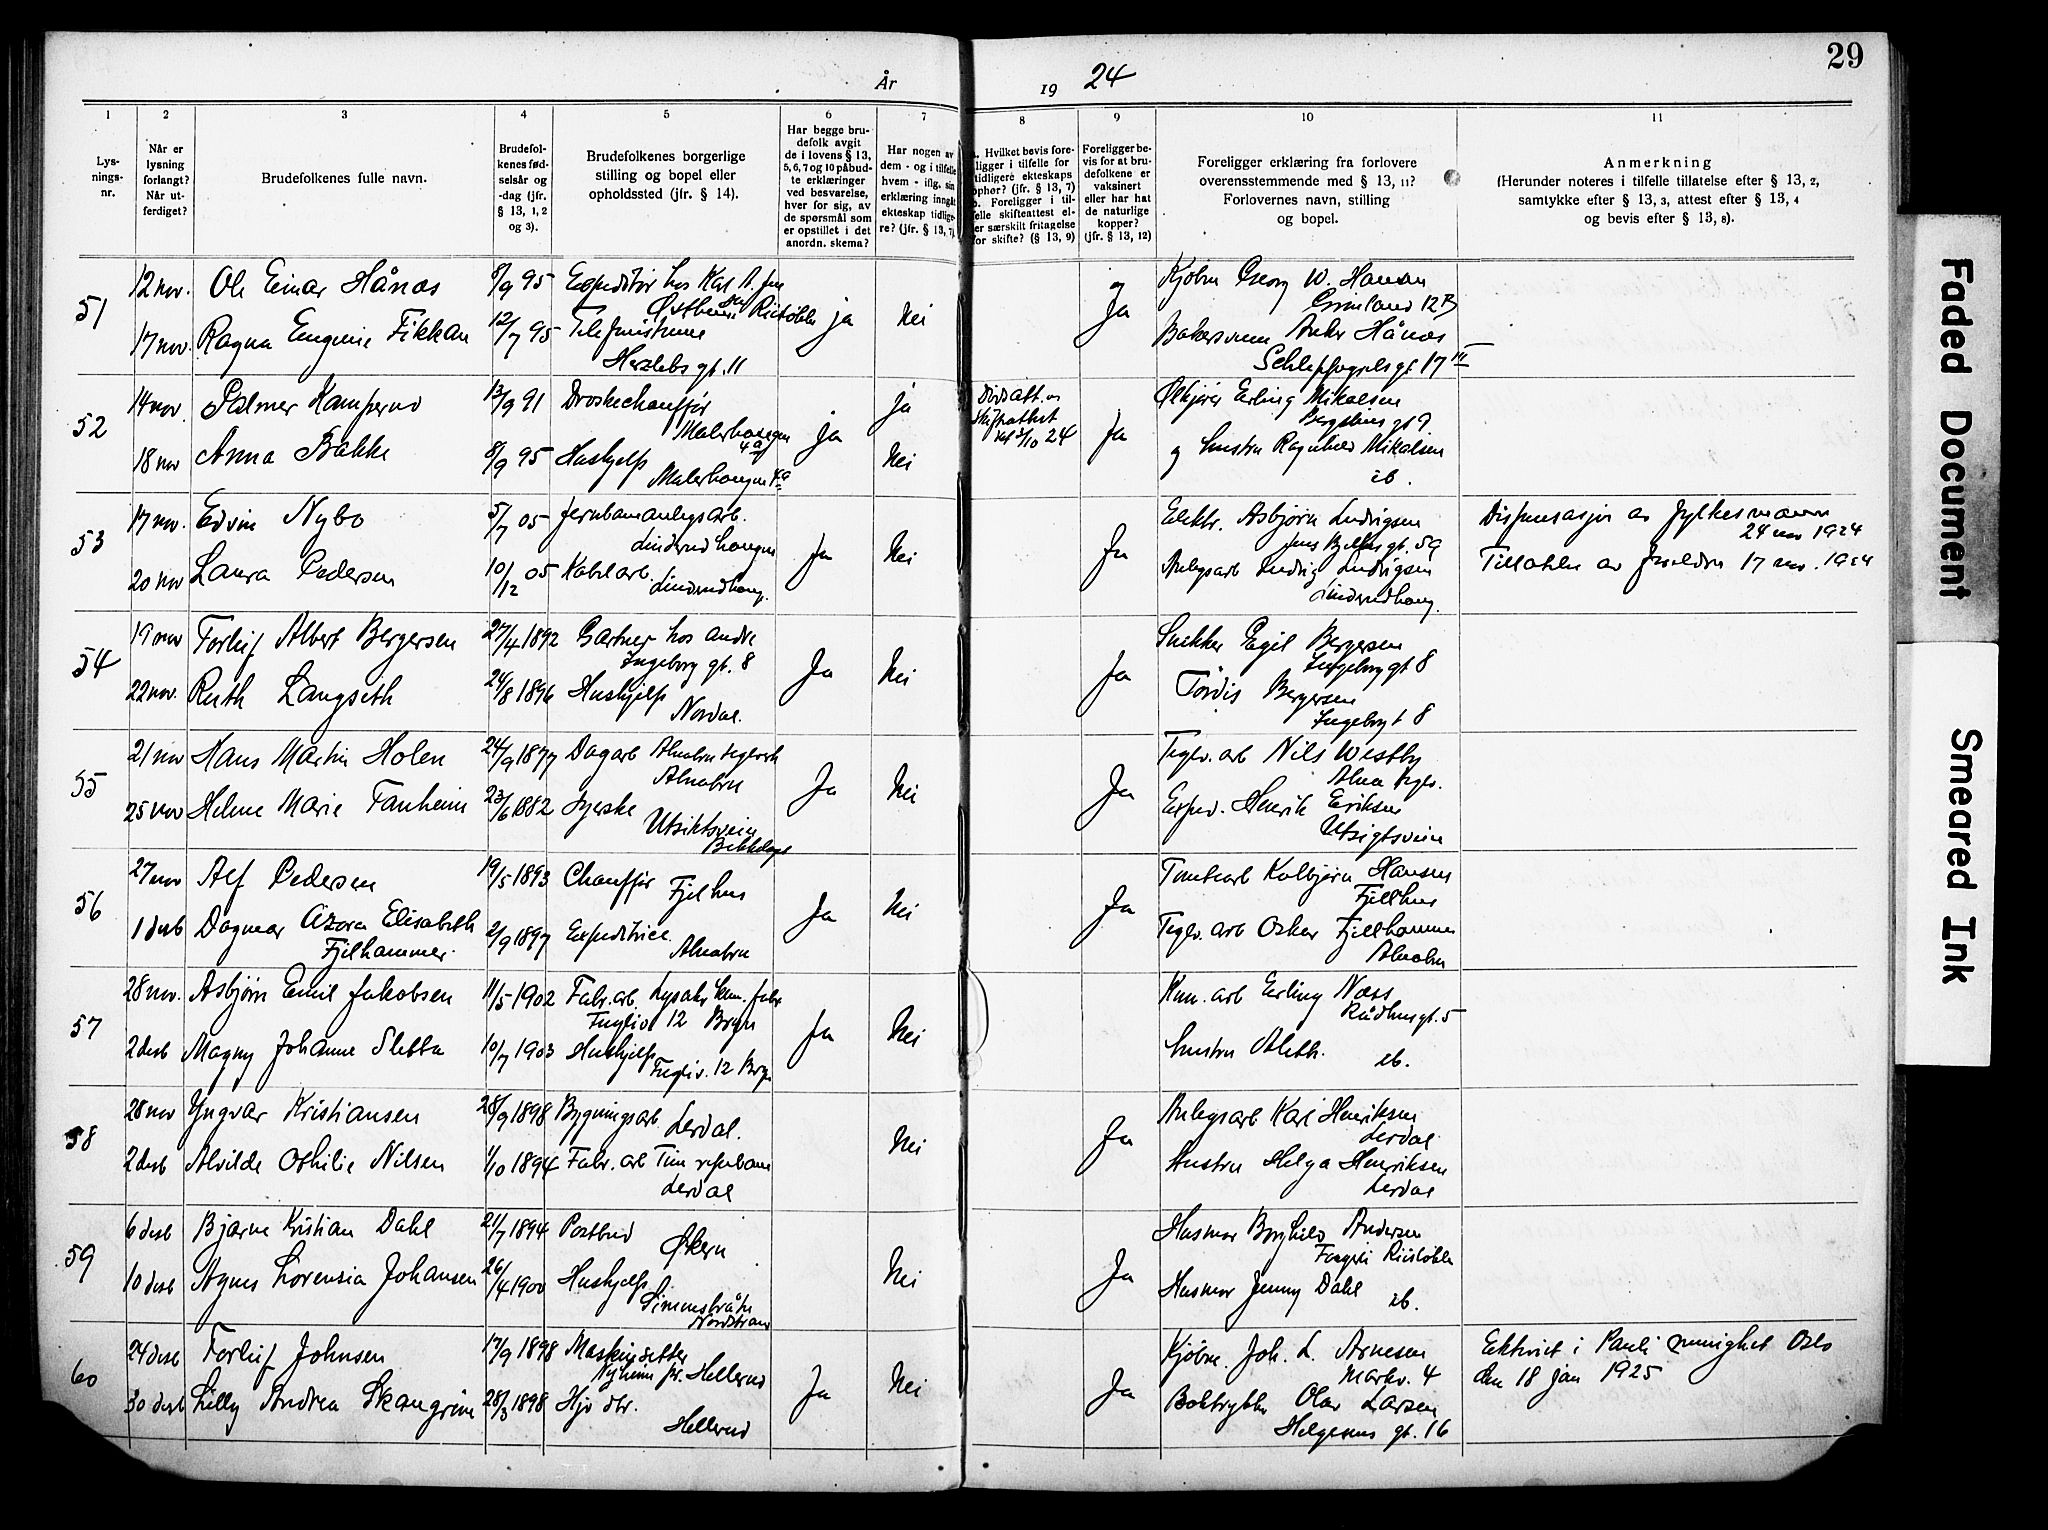 29
År 19 24
1 2 3 4 5 6 7 8 9 10 11
Lys-
nings-
nr.
Når er
lysning
forlangt?
Når ut-
ferdiget?
Brudefolkenes fulle navn.
Brudefol-
kenes fød-
selsår og
-dag (jfr.
§ 13, 1, 2
og 3).
Brudefolkenes borgerlige
stilling og bopel eller
opholdssted (jfr. § 14).
Har begge bru-
defolk avgit
de i lovens § 13,
5, 6, 7 og 10 påbud-
te erklæringer
ved besvarelse,
hver for sig, av
de spørsmål som
er opstillet i det
anordn. skema?
Har nogen av
dem - og i tilfelle
hvem - iflg. sin
erklæring inngåt
ekteskap tidlige-
re? (jfr. § 13, 7).
Hvilket bevis fore-
ligger i tilfelle for
tidligere ekteskaps
ophør? (jfr. § 13, 7)
b. Foreligger i til-
felle skifteattest el-
er særskilt fritagelse
for skifte? (§ 13, 9)
Foreligger be-
vis for at bru-
defolkene er
vaksinert
eller har hat
de naturlige
kopper?
(jfr. § 13, 12)
Foreligger erklæring fra forlovere
overensstemmende med § 13, 11?
Forlovernes navn, stilling
og bopel.
Anmerkning
(Herunder noteres i tilfelle tillatelse efter § 13, 2,
samtykke efter § 13, 3, attest efter § 13, 4
og bevis efter § 13, 8).
51
12 nov. Ole Einar Hånæs 8/9 95 Expeditør hos
ja nei Ja
Georg W. Hansen
Grønland 12 B
17 nov. Ragna Eugenie Fikkan 12/7 95 Telefonistinne
Herslebs gt. 11
Anker Hånæs
Schleppegrels gt 17 III
52
14 nov. Palmer Kamperud 13/9 91 Droskechauffør
Malerhaugen
4a
ja ja
skifteattest
24
Ja
Erling Mikalsen
gt 9
18 nov Anna Bakke 8/9 95 Hushjelp
Malerhaugen 4a
Nei
og hustru Ragnhild Mikalsen
ib.
53
17 nov. Edvin Nybo 5/7 05 Jernbaneanlegsarb.
Linderud haugen
Ja Nei Ja
Elektr. Asbjørn Ludvigsen
Jens Bjelkes gt. 59
Dispensasjon av fylkesmann
24 nov 1924
20 nov Laura Pedersen 10/12 05 Kabelarb.
Linderudhaug.
Anlegsarb Ludvig Ludvigsen
Linderudhaug.
Tillatelse av foreldre 17 nov. 1924
54
19 nov Torleif Albert Bergersen 27/4 1892 Gartner hos andre
Ingeborg gt. 8
Ja Nei Ja
Snekker Egil Bergersen
Ingeborg gt 8
22 nov. Ruth Langseth 24/8 1896 Hushjelp
Nordal.
Tordis Bergersen
8
55
21 nov Hans Martin Holen 24/9 1877 Dagarb Alnabru teglverk
Alnabru
Ja Nei Ja
Teglv. arb Nils Westby
Alna teglv.
25 nov Helene Marie Tanheim 23/6 1882 Syerske
Utsiktsveien
Exped. Henrik Eriksen
Utsigtsveien
56
27 nov Alf Pedersen 19/5 1893 Chauffør
Fjelhus
Ja Nei Ja
Tomtearb Kolbjørn Hansen
Fjellhus
1 desb Dagmar Azora Elisabeth
Fjelhammer.
2/9 1897 Expeditrice
Alnabru
Teglv. arb Oskar Fjellhammer
Alnabru
57
28 nov. Asbjørn Emil Jakobsen 11/5 1902 Fabr. arb. Lysaker kem. fabr
12 Bryn
Ja Nei
arb Erling Næss
Rådhusgt. 5
2 desb Magny Johanne Sletta 10/7 1903 Hushjelp
12 Bryn
hustru Aleth. ib.
58
28 nov Yngvar Kristiansen 28/9 1898 Bygningsarb.
Lerdal.
Nei Ja
Anlegsarb Karl Henriksen
Lerdal
2 desb Alvilde Othilie Nilsen 1/10 1894 Fabr. arb
Lerdal
Hustru Helga Henriksen
Lerdal
59
6 desb Bjarne Kristian Dahl 21/7 1894 Postbud
Økern
Nei Ja
Husmor Borghild Andersen
10 desb Agnes Lorensia Johansen 26/4 1900 Hushjelp
Nordstrand
Husmor Jenny Dahl ib.
60
24 desb Torleif Johnsen 17/9 1898 Maskinsetter
Nyheim pr. Hellerud
Ja Nei Ja
Kjøbm. Joh. L. Arnesen
Markv. 4
Ektviet i Pauli menighet Oslo
den 18 jan 1925
30 desb Lilly Andrea Skaugrim 28/3 1898 Hjv. dtr.
Hellerud
Boktrykker Olav Larsen
Helgesens gt. 16
Faded Document
Smeared Ink